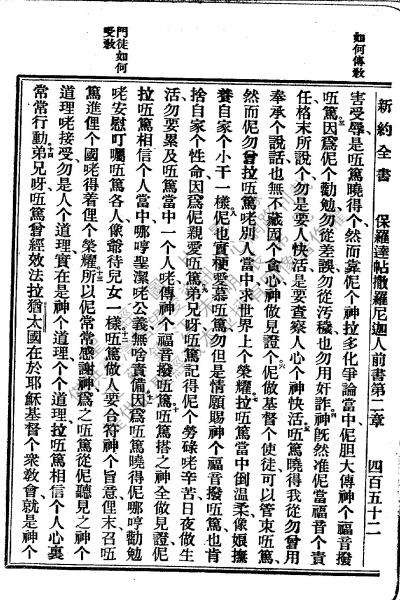 新約全書　保羅達帖撒羅尼迦人前書第二章　四百五十二
如何傳教
害受辱是伍篤曉得个、然而靠伲个神拉多化爭論當中、伲胆大傳神个福音撥
伍篤、因爲伲个勸勉勿從差誤、勿從污穢、也勿用奸詐、神旣然准伲當福音个責
任、格末所說个、勿是要人快活、是要查察人心个神快活、伍篤曉得我從勿曾用
奉承个說話、也無不藏因个貪心、神做見證个、伲做基督个使徒可以管束伍篤、
然而伲勿曾拉伍篤咾別人當中、求世界上个榮耀、拉伍篤當中倒溫柔像娘撫
養自家个小干一樣、伲也實梗愛慕伍篤、勿但是情願賜神个福音撥伍篤、也肯
捨自家个性命、因爲伲親愛伍篤、弟兄呀、伍篤記得伲个勞碌咾辛苦、日夜做生
活、勿要累及伍篤當中一个人咾傳神个福音撥伍篤、伍篤搭之神全做見證、伲
拉伍篤相信个人當中、哪哼聖潔咾公義無啥責備、因爲伍篤曉得伲哪哼勸勉
門徒如何受教
咾安慰叮囑伍篤各人、像爺待兒女一樣、伍篤做人要合符神个旨意、俚末召伍
篤進俚个國、咾得着俚个榮耀、所以伲常常感謝神、爲之伍篤從伲聽見之神个
道理咾接受、勿是人个道理、實在是神个道理、个个道理、拉伍篤相信个人心裏
常常行動、弟兄呀、伍篤曾經效法拉猶太國在於耶穌基督个衆教會、就是神个